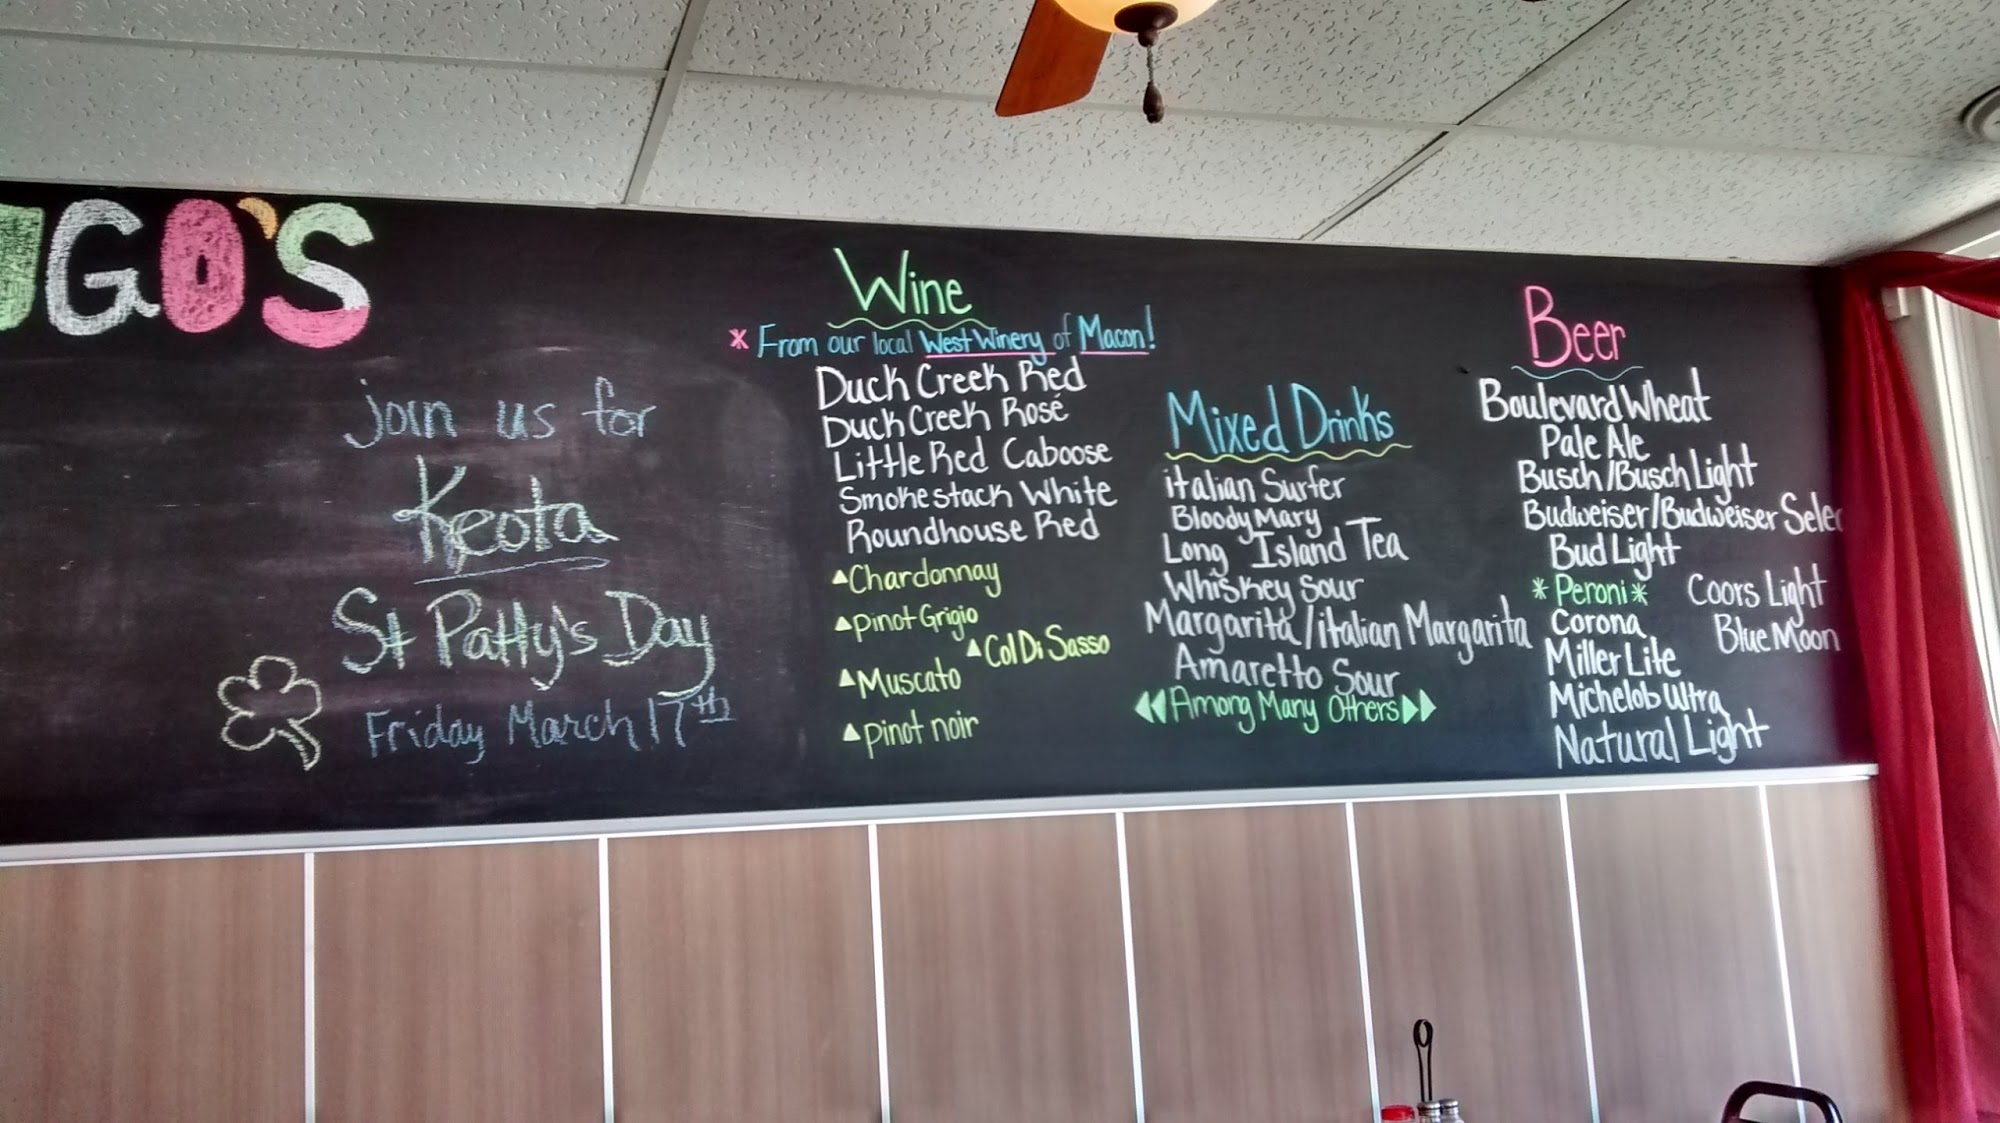 UGO'S
join us for
Keota
St Patty's Day
Friday March 17th
Wine
* From our local West Winery of Macon!
Duck Creek Red
Duck Creek Rosé
Little Red Caboose
Smokestack White
Roundhouse Red
▲Chardonnay
▲pinot Grigio
▲Col Di Sasso
▲Muscato
▲pinot noir
Mixed Drinks
italian Surfer
Bloody Mary
Long Island Tea
Whiskey Sour
Margarita/italian Margarita
Amaretto Sour
◀◀Among Many Others▶▶
Beer
Boulevard Wheat
Pale Ale
Busch/Busch Light
Budweiser/Budweiser Selec
Bud Light
*Peroni*
Corona
Miller Lite
Michelob Ultra
Natural Light
Coors Light
Blue Moon